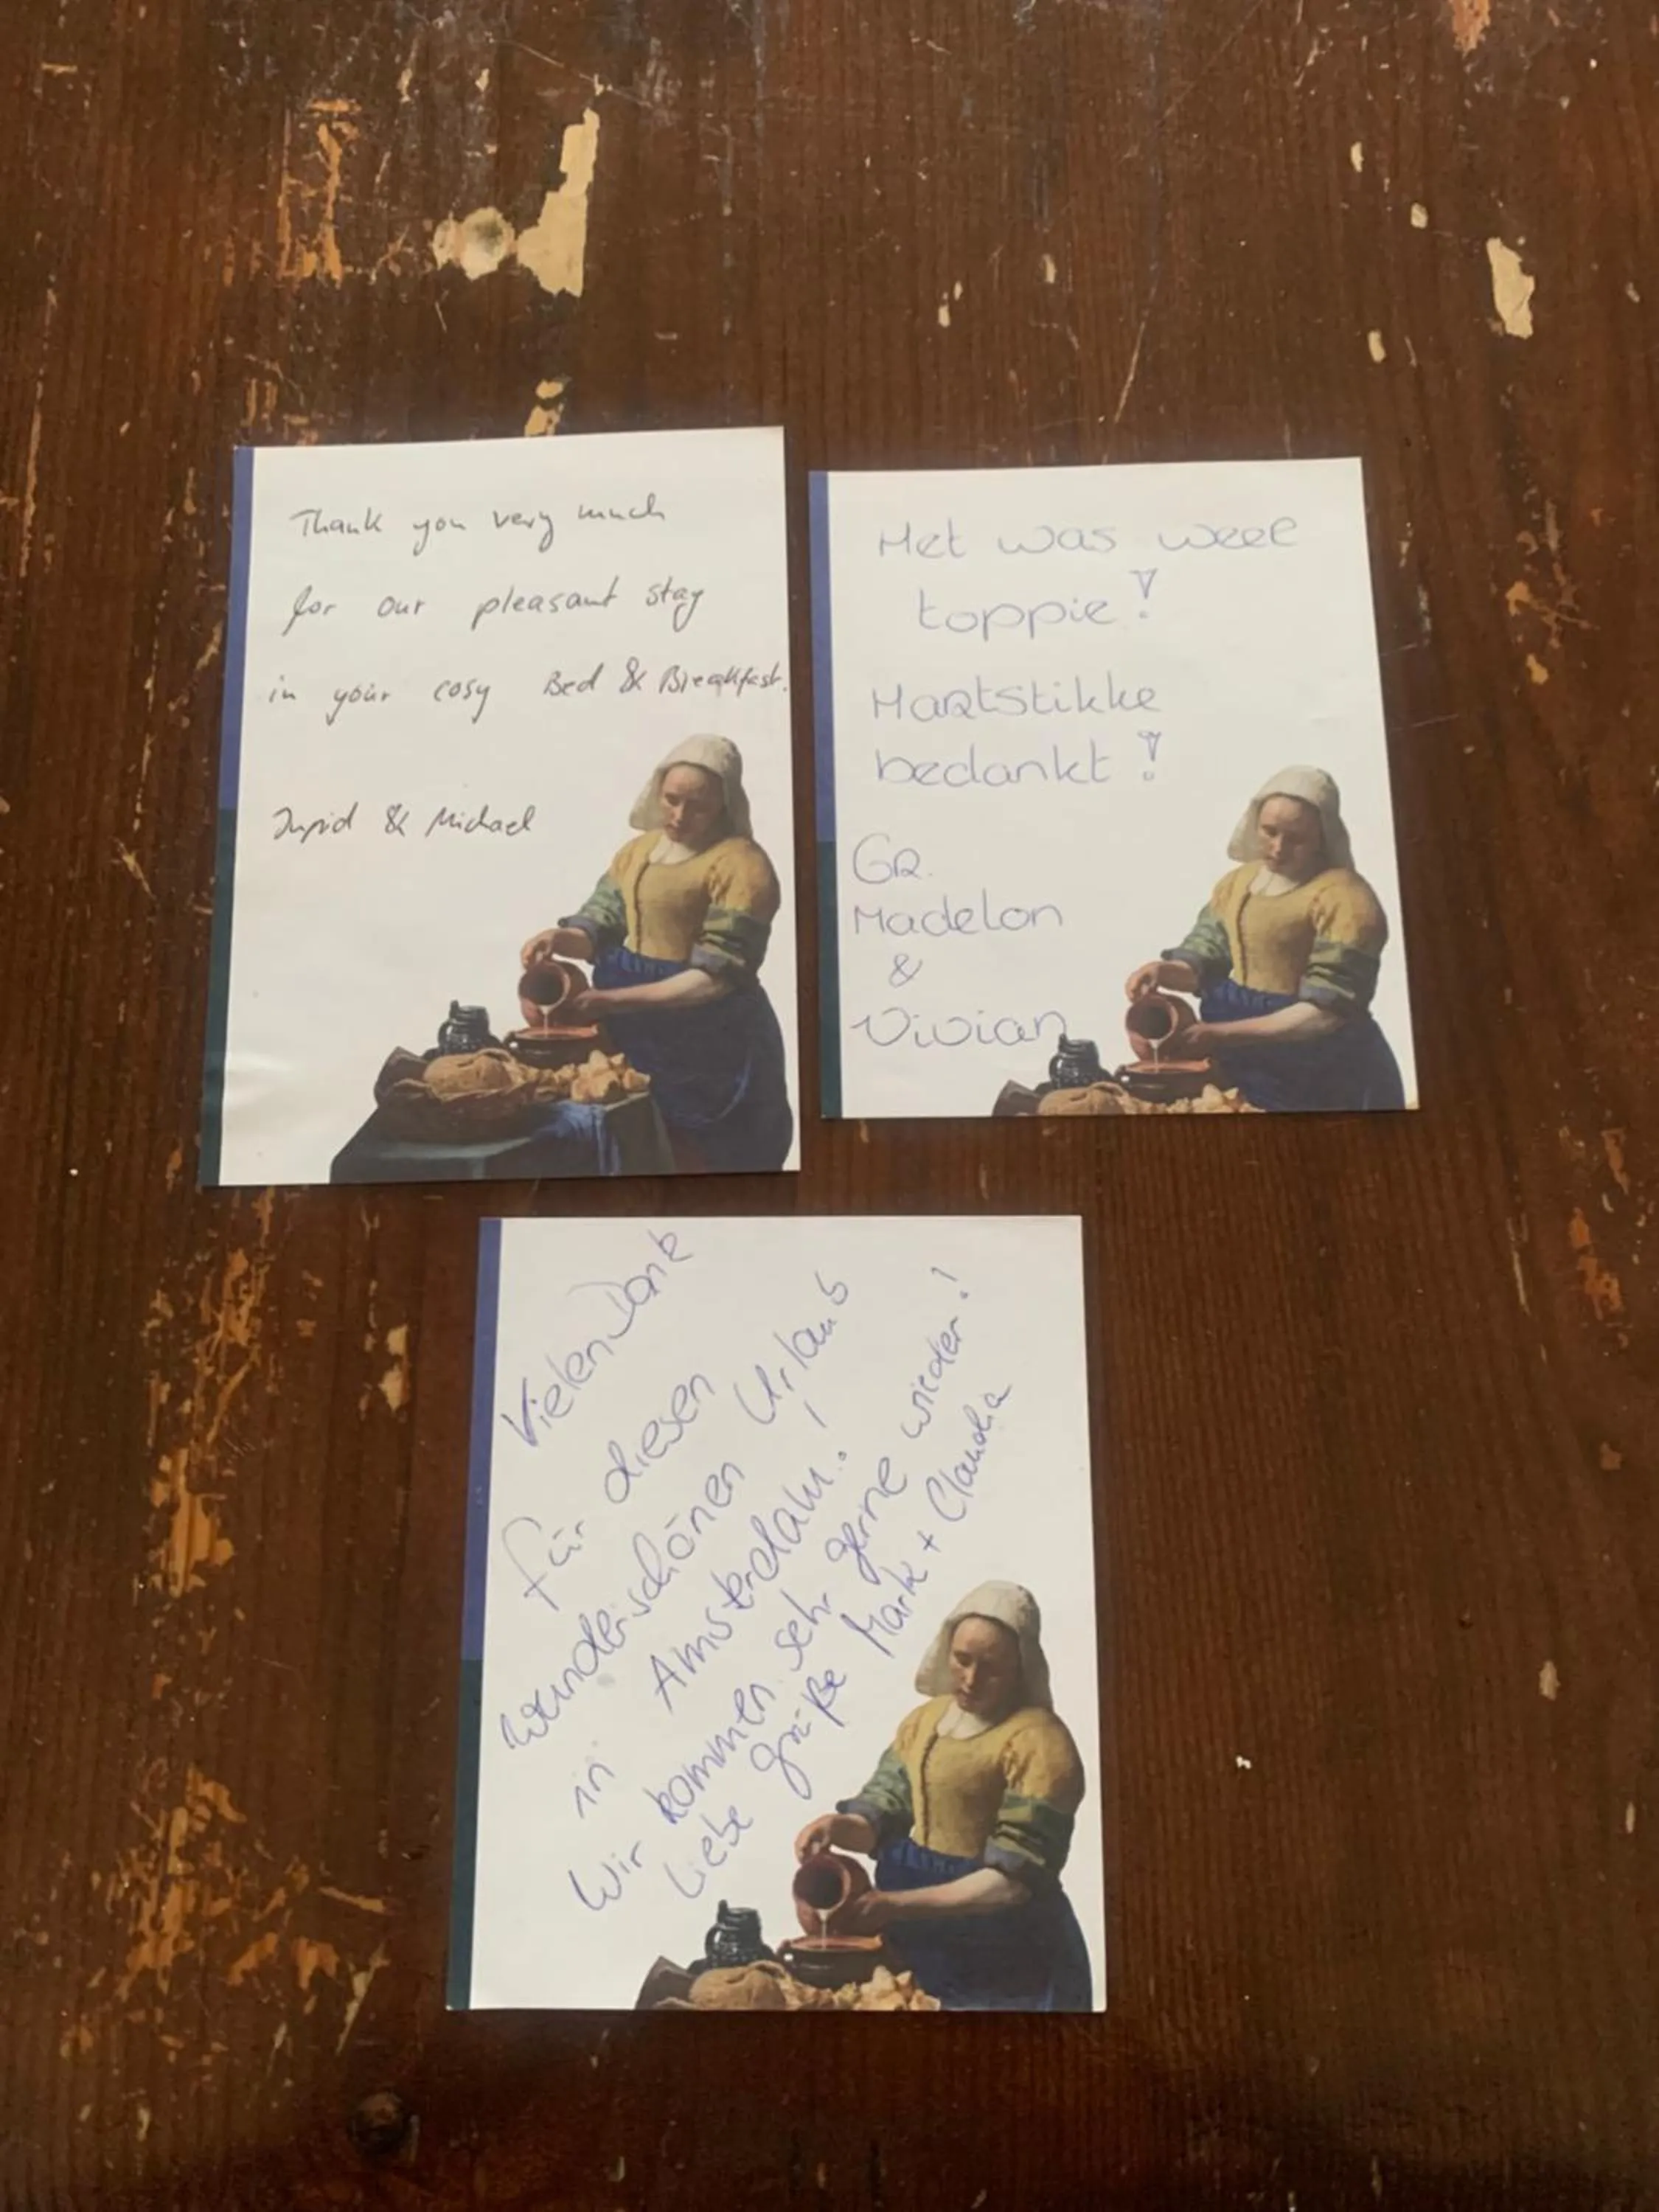 Thank you very much
for our pleasant stay
in your cosy Bed & Breakfast.
Ingrid & Michael
Het was weer
toppie!
Hartstikke
bedankt!
GR.
Madelon
&
Vivian
Vielen Dank
für diesen
wunderschönen Urlaub
in Amsterdam!
Wir kommen sehr gerne wieder!
Liebe Grüße Mark + Claudia